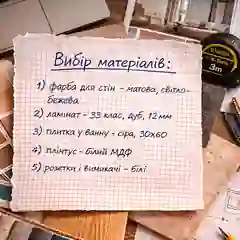 Вибір матеріалів:
1) фарба для стін - матова, світло-
бежева
2) ламінат - 33 клас, дуб, 12 мм
3) плитка у ванну - сіра, 30х60
4) плінтус - білий МДФ
5) розетки і вимикачі - білі
3m